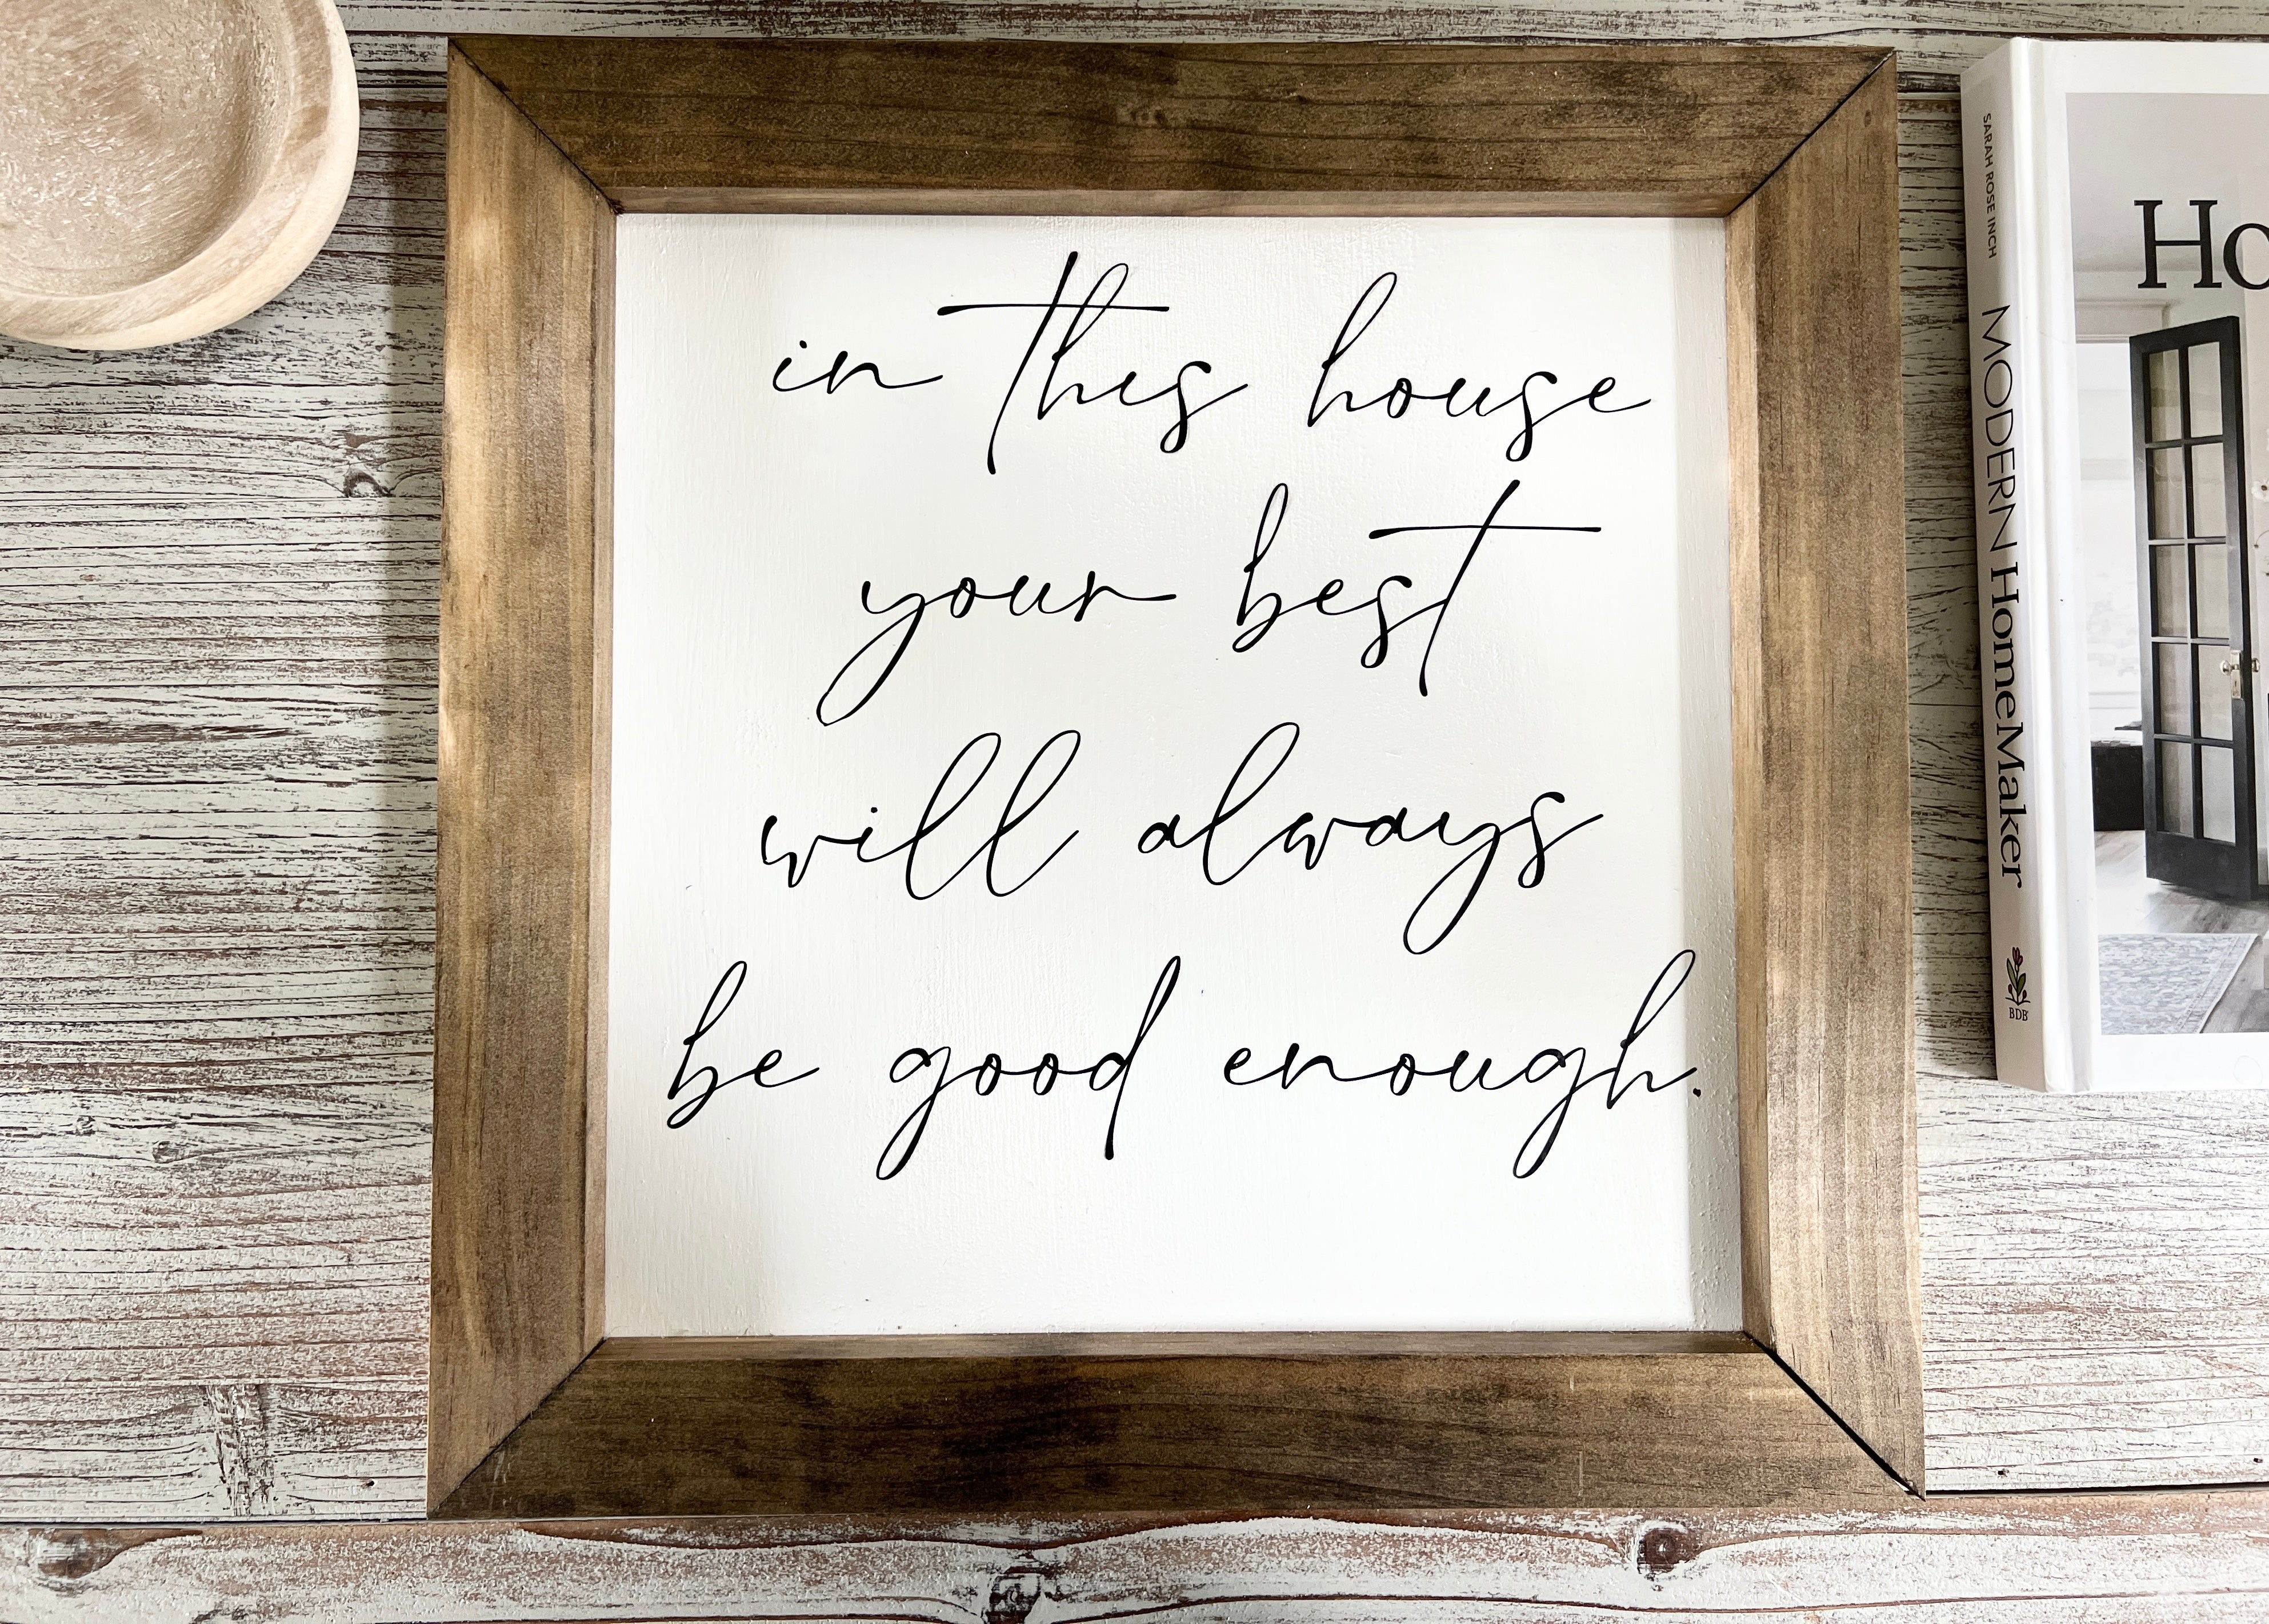 in this house
your best
will always
be good enough.
SARAH ROSE INCH
MODERN HomeMaker
BDB
Ho